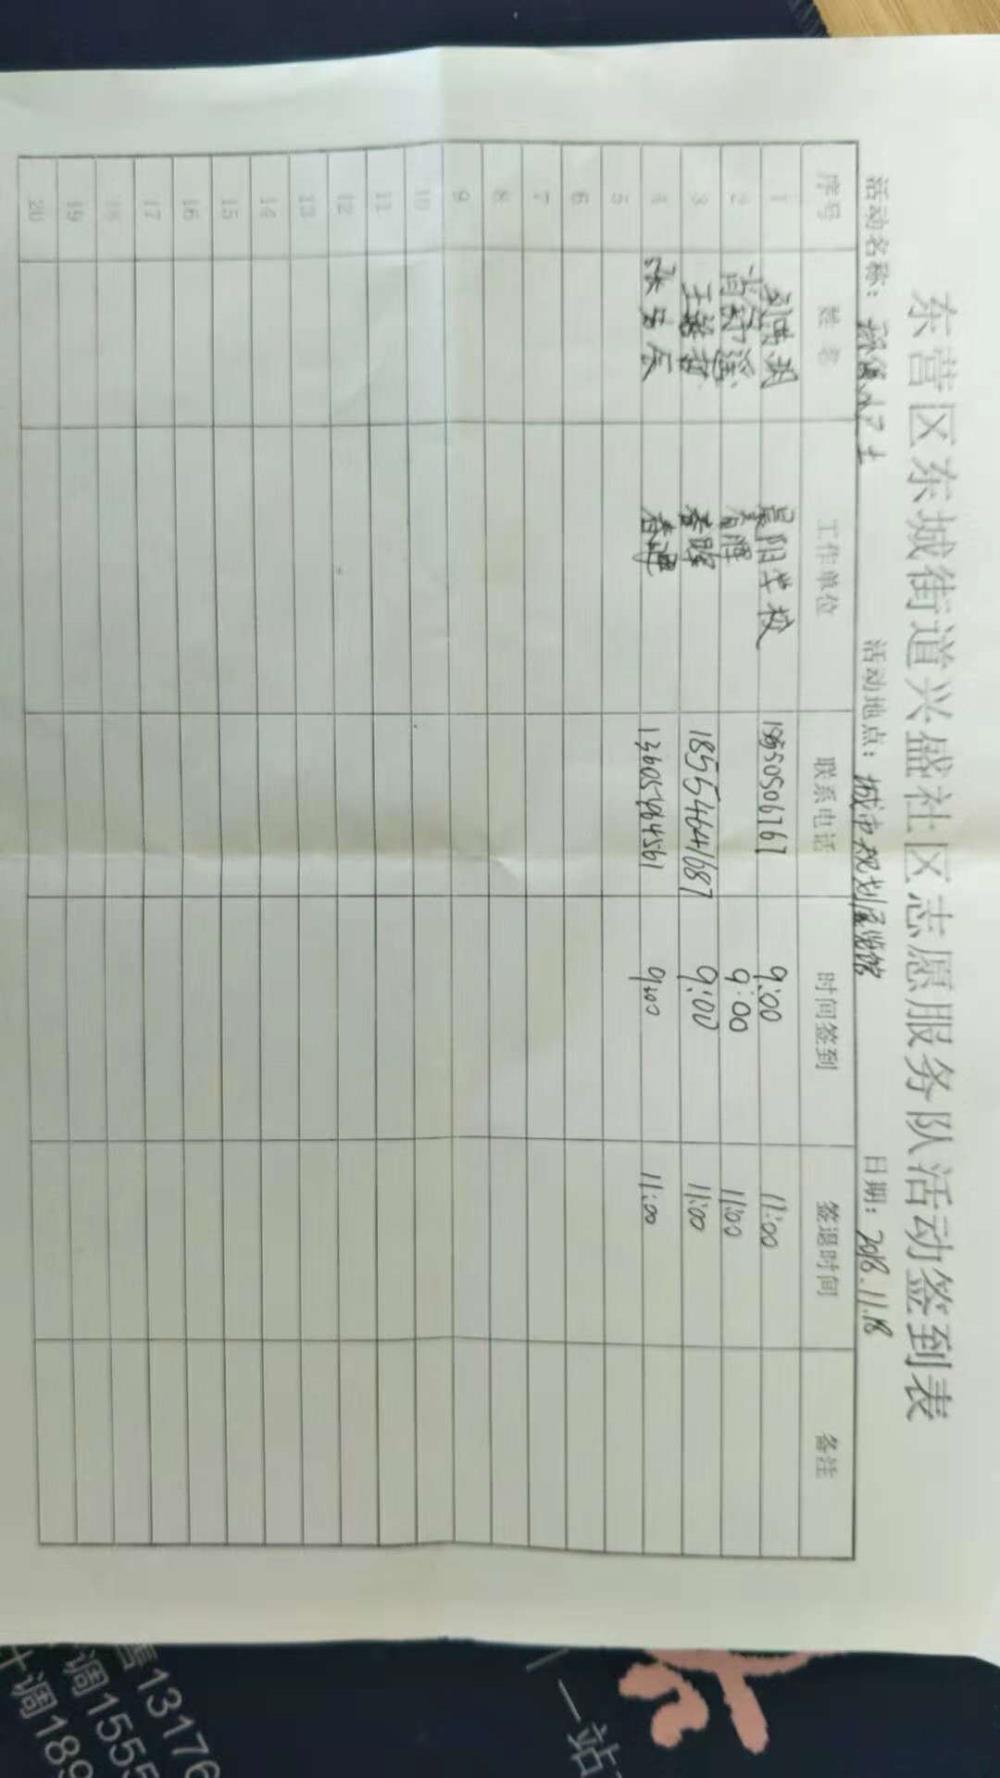 东营区东城街道兴盛社区志愿服务队活动签到表
活动名称： 活动地点：城市规划展览馆 日期：2018.11.18
序号 姓名 工作单位 联系电话 时间签到 签退时间 备注
1 晨阳学校 9:00 11:00
2 春晖 9:00 11:00
3 王 春晖 18554641687 9:00 11:00
4 张 辰 9:00 11:00
5
6
7
8
9
10
11
12
13
14
15
16
17
18
19
20
一站
售13176
调1555
计调189